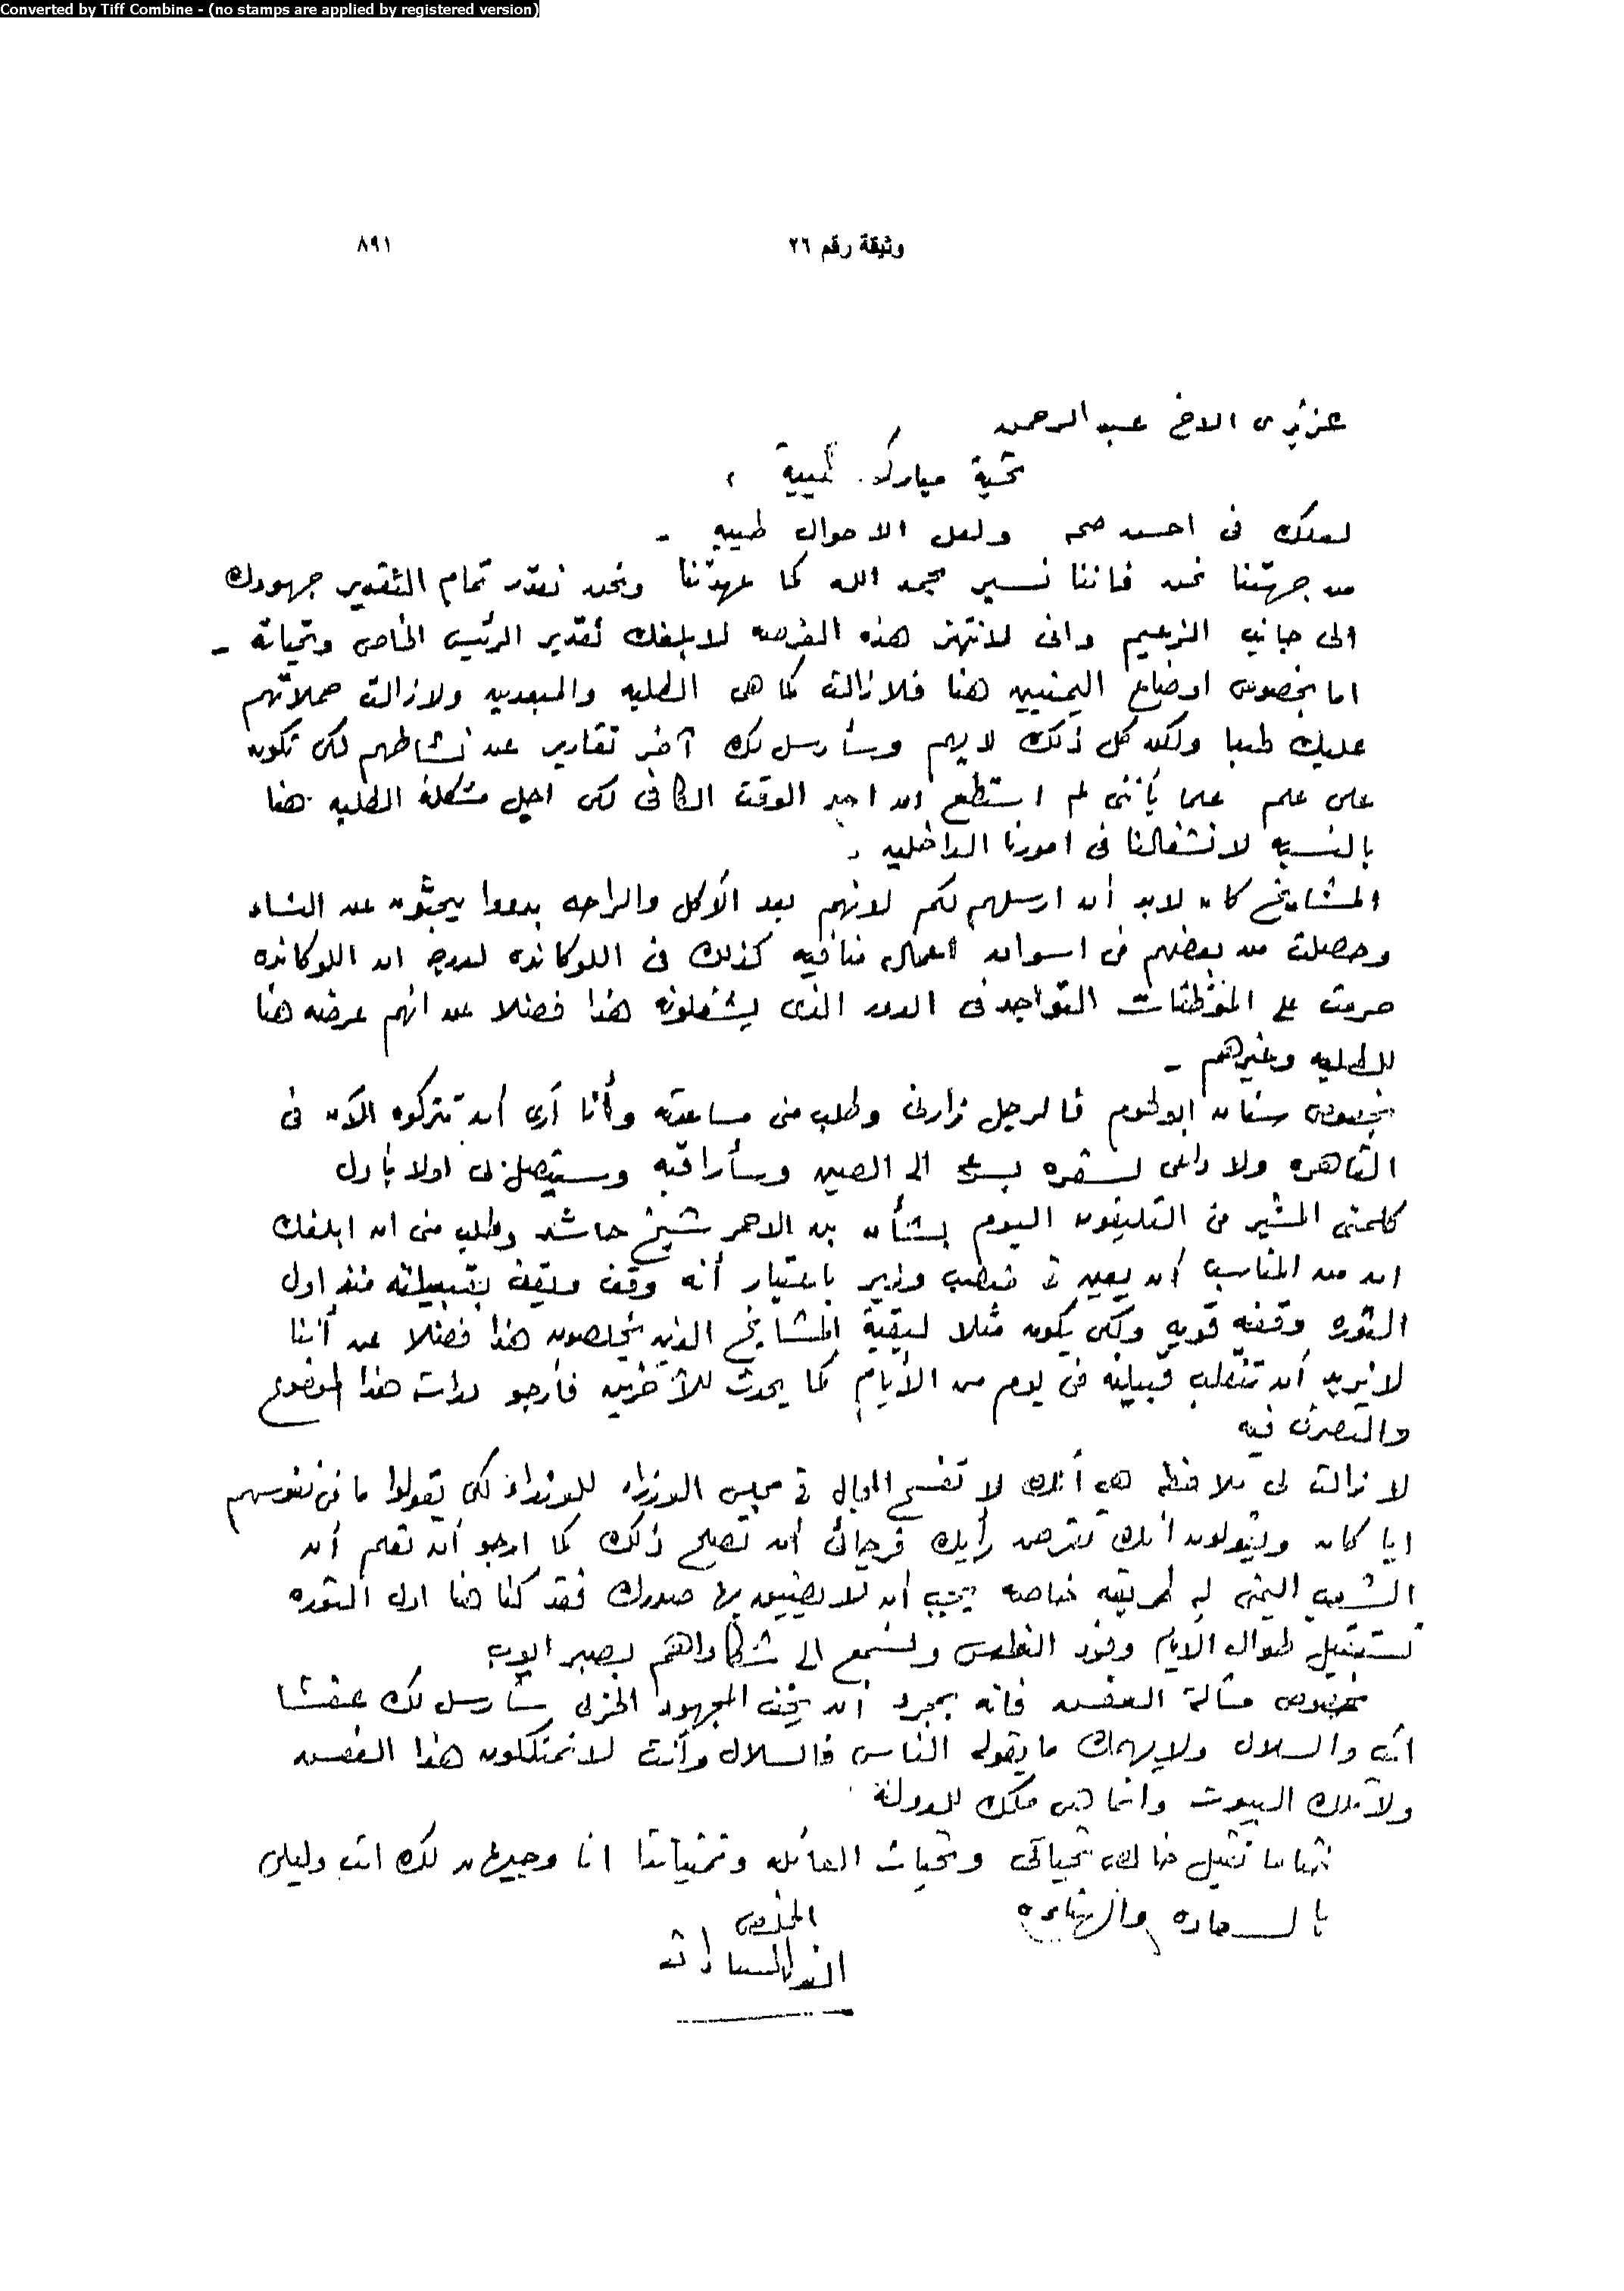 Converted by Tiff Combine - (no stamps are applied by registered version)
وثيقة رقم ٢٦
٨٩١
عزيزى الاخ عبد الرحمن
تحية مباركة طيبة ،
لعلك فى احسن صحه ولعل الاحوال طيبه -
من جهتنا نحن فاننا نسير بحمد الله كما عهدتنا ونحن نقدر تمام التقدير جهودك
الى جانب الزعيم وانى لانتهز هذه الفرصه لابلغك تقدير الرئيس الخاص وتحياته -
اما بخصوص اوضاع اليمنيين هنا فلا زالت كما هى الطلبه والمبعدين ولا زالت حملاتهم
عليك طبعا ولكن كل ذلك لا يهم وسأرسل لك آخر تقارير عن نشاطهم لكى تكون
على علم علما بأننى لم استطع ان اجد الوقت الكافى لكى احل مشكلة الطلبه هنا
بالنسبه لانشغالنا فى امورنا الداخليه .
المشايخ كان لابد أن ارسلهم لكم لانهم بعد الأكل والراحه بدءوا يبحثون عن النساء
وحصلت من بعضهم فى اسوان اعمال منافيه كذلك فى اللوكانده لدرجة ان اللوكانده
حرمت على الموظفات التواجد فى الدور الذى يشغلونه هذا فضلا عن انهم عرضه هنا
للطلبه وغيرهم -
بخصوص سنان ابو لحوم فالرجل زارنى وطلب منى مساعدته وأنا أرى أن تتركوه الآن فى
القاهره ولا داعى لسفره الى الصين وسأراقبه وسيتصل بى اولا بأول
كلمنى المشير فى التليفون اليوم بشأن بن الاحمر شيخ حاشد وطلب منى ان ابلغك
ان من المناسب أن يعين فى منصب وزير باعتبار أنه وقف ويقف بقبيلته منذ اول
الثوره وقفه قويه ولكى يكون مثلا لبقية المشايخ الذين يخلصون هذا فضلا عن أننا
لا نريد أن تنقلب قبيلته فى يوم من الأيام كما يحدث للآخرين فأرجو دراسة هذا الموضوع
والتصرف فيه
لا زالت لى ملاحظه هى أنك لا تفسح المجال فى مجلس الوزراء للوزراء لكى يقولوا ما فى نفوسهم
ايا كان ويقولون انك تفرض رأيك فرجائى أن تصلح ذلك كما ارجو أن تعلم أن
الشعب اليمنى له طريقه خاصه يجب أن لا يضيق بها صدرك فقد كنا هنا اول الثوره
نستقبل طوال الايام وفود ونستمع الى شكاواهم بصبر ايوب
بخصوص مسألة العفش فانه بمجرد أن يخف المجهود الحربى سأرسل لك عفشا
انت والسلال ولا يهمك ما يقوله الناس فالسلال وأنت لا تمتلكون هذا العفش
ولا تلك البيوت وانما هى ملك للدولة
ختاما تقبل خالص تحياتى وتحيات العائله وتمنياتنا انا وجيهان لك انت وليلى
بالسعاده والهناءه
المخلص
انور السادات